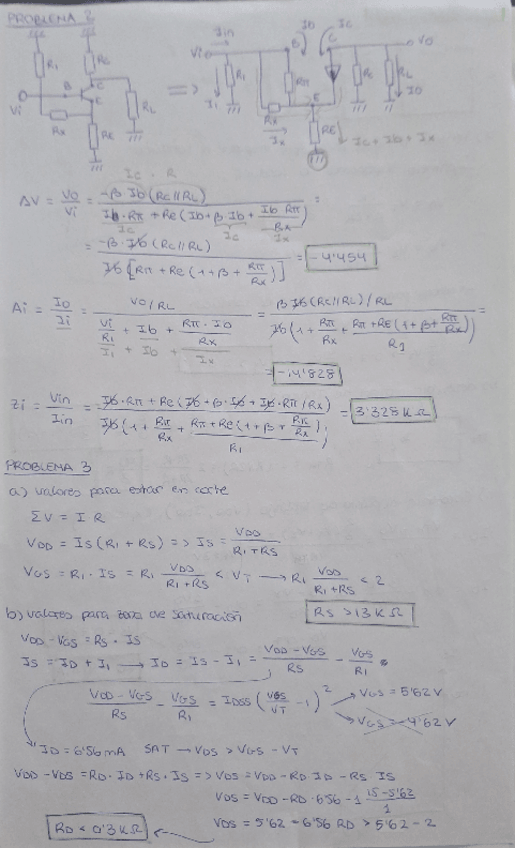 PROBLEMA 2
R1
Rc
Vi
B
C
E
Rx
RE
RL
=>
Vi
Iin
R1
I1
B
Ib
Ic
C
Vo
Rπ
Rx
Ix
E
Rc
RL
Io
RE
Ic + Ib + Ix
Ic · R
ΔV = Vo/Vi = -β Ib (Rc//RL) / (Ib·Rπ + Re (Ib + β Ib + Ib Rπ/Rx)) =
Ic Ix
= -β · Ib (Rc//RL) / (Ib [Rπ + Re (1+β + Rπ/Rx)]) = -4'454
Ai = Io/Ii = (Vo/RL) / (Vi/R1 + Ib + Rπ·Ib/Rx) = β Ib (Rc//RL)/RL / (Ib (1 + Rπ/Rx + (Rπ+RE (1+β+Rπ/Rx))/R1)) =
I1 + Ib + Ix
= -14'828
Zi = Vin/Iin = (Ib·Rπ + Re (Ib + β·Ib + Ib·Rπ/Rx)) / (Ib (1 + Rπ/Rx + (Rπ+Re (1+β+Rπ/Rx))/R1)) = 3'328 KΩ
PROBLEMA 3
a) valores para estar en corte
ΣV = I R
VDD = IS (R1 + RS) => IS = VDD/(R1+RS)
VGS = R1 · IS = R1 VDD/(R1+RS) < VT → R1 VDD/(R1+RS) < 2
RS > 13 KΩ
b) valores para zona de saturación
VDD - VGS = RS · IS
IS = ID + I1 → ID = IS - I1 = (VDD - VGS)/RS - VGS/R1
(VDD - VGS)/RS - VGS/R1 = IDSS (VGS/VT - 1)² → VGS = 5'62 V
→ VGS = -4'62 V
ID = 6'56 mA SAT → VDS > VGS - VT
VDD - VDS = RD · ID + RS · IS => VDS = VDD - RD · ID - RS IS
VDS = VDD - RD · 6'56 - 1 (15 - 5'62)/1
VDS = 5'62 - 6'56 RD > 5'62 - 2
RD < 0'3 KΩ